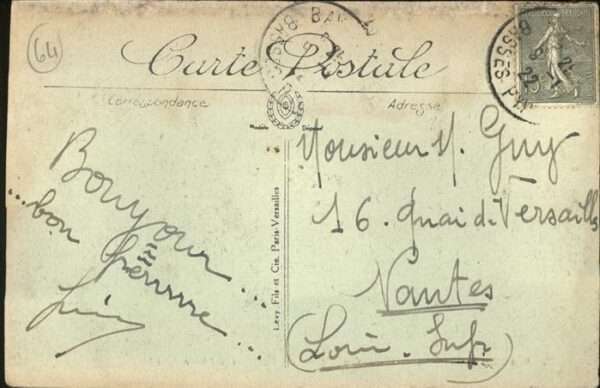 64
Carte Postale
Correspondance
Adresse
BASSES P
Bonjour...
...bon
Monsieur M. Guy
16. Quai de Versailles
Nantes
(Loire. Infre)
Levy Fils et Cie, Paris-Versailles